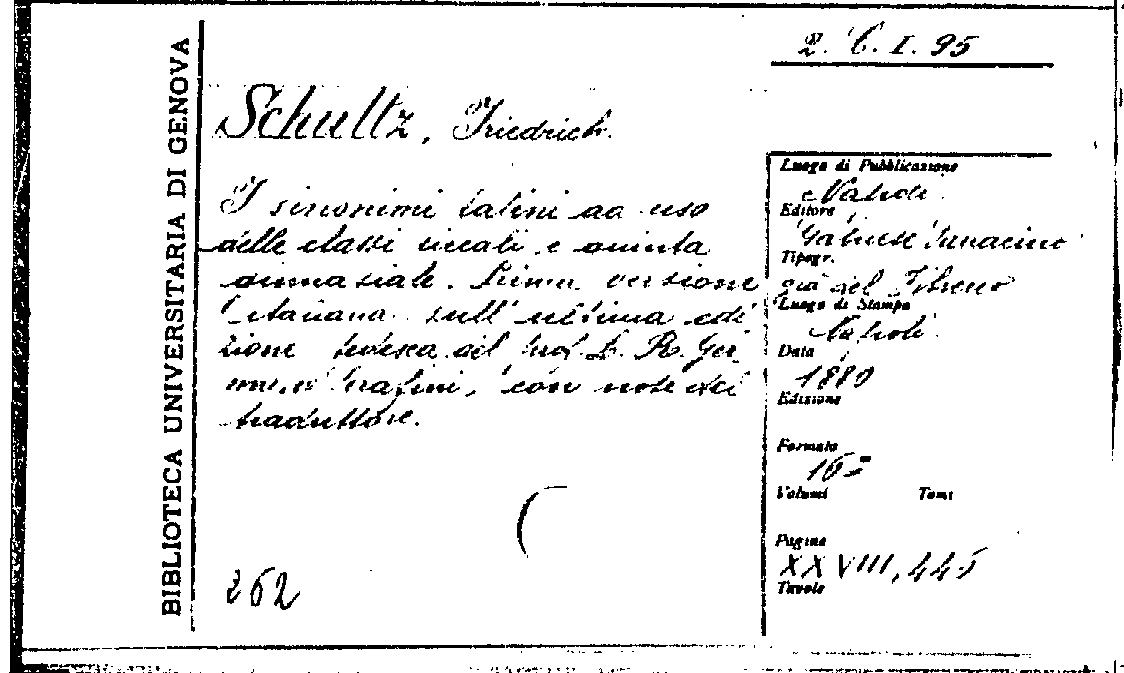 BIBLIOTECA UNIVERSITARIA DI GENOVA
2. C. I. 95
Schultz, Friedrich.
I sinonimi latini ad uso
delle classi liceali e quinta
ginnasiale. Prima versione
italiana sull'ultima edi
zione tedesca del prof.
con note del
traduttore.
262
Luogo di Pubblicazione
Napoli
Editore
Gabriele Sarracino
Tipogr.
già del Fibreno
Luogo di Stampa
Napoli
Data
1880
Edizione
Formato
16°
Volumi Tomi
Pagine
XXVIII, 445
Tavole